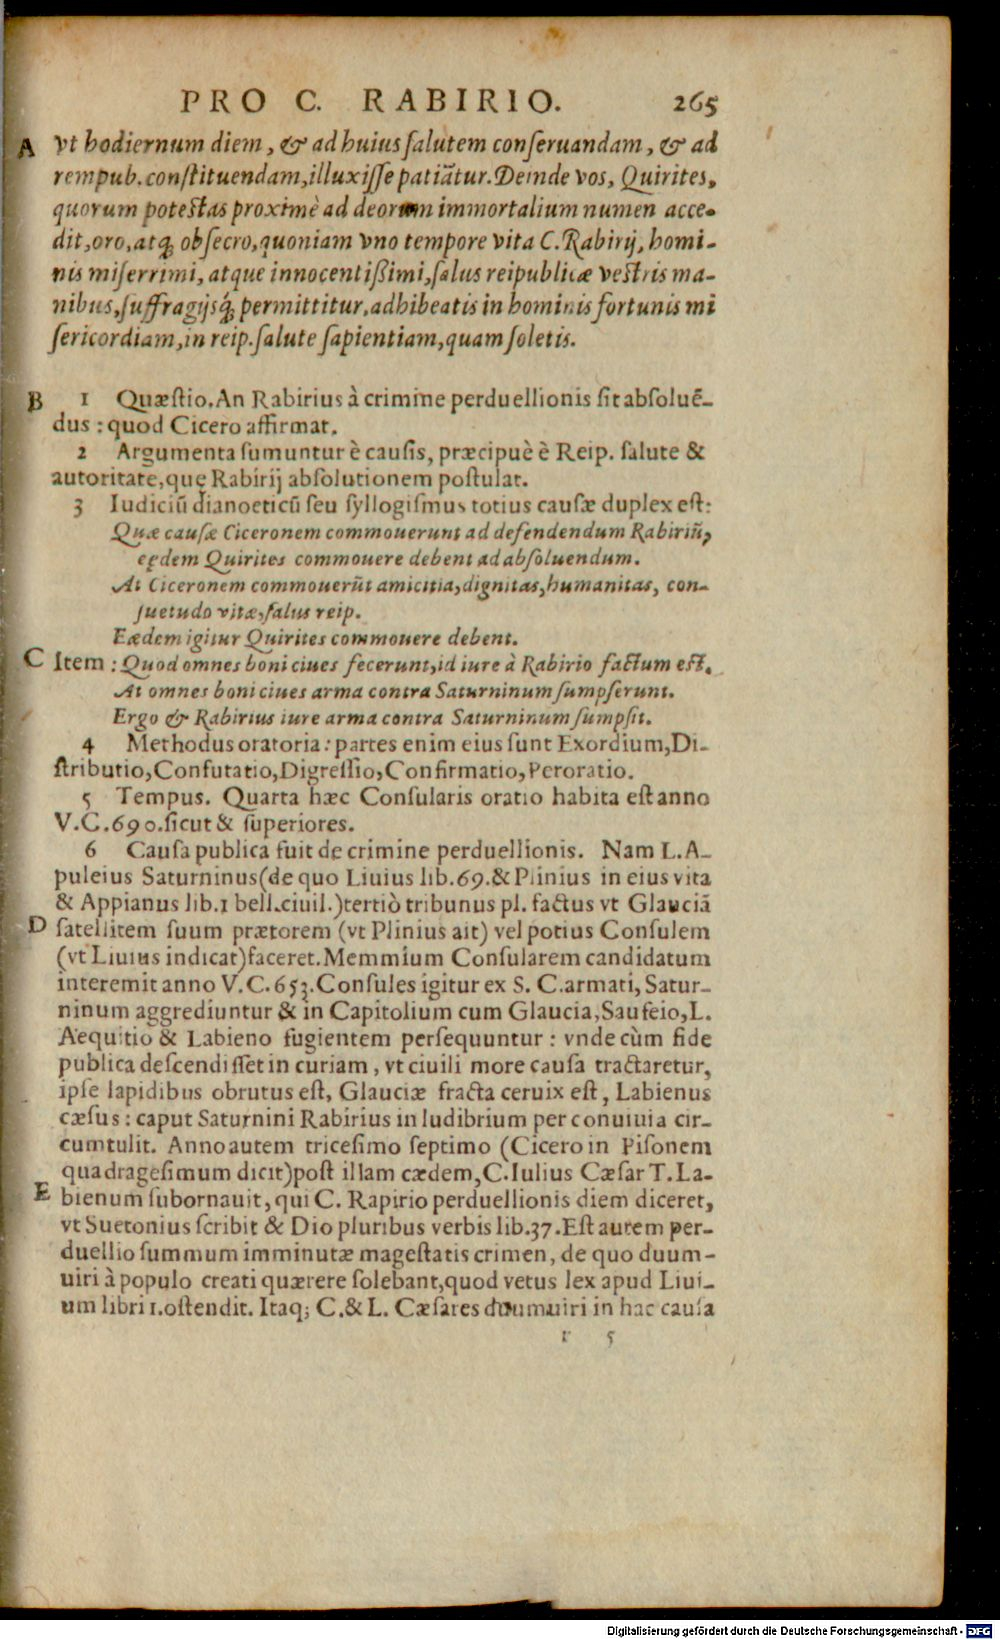 PRO C. RABIRIO. 265
A vt hodiernum diem, & ad huius ſalutem conſeruandam, & ad
rempub. conſtituendam, illuxiſſe patiãtur. Deinde vos, Quirites,
quorum poteſtas proximè ad deorum immortalium numen acce-
dit, oro, atq; obſecro, quoniam vno tempore vita C. Rabirij, homi-
nis miſerrimi, atque innocentißimi, ſalus reipublicæ veſtris ma-
nibus, ſuffragijsq́; permittitur, adhibeatis in hominis fortunis mi
ſericordiam, in reip. ſalute ſapientiam, quam ſoletis.
B 1 Quæſtio. An Rabirius à crimine perduellionis ſit abſoluẽ-
dus: quod Cicero affirmat.
2 Argumenta ſumuntur è cauſis, præcipuè è Reip. ſalute &
autoritate, quę Rabirij abſolutionem poſtulat.
3 Iudiciũ dianoeticũ ſeu ſyllogiſmus totius cauſæ duplex eſt:
Quæ cauſæ Ciceronem commouerunt ad defendendum Rabiriũ,
eędem Quirites commouere debent ad abſoluendum.
At Ciceronem commouerũt amicitia, dignitas, humanitas, con-
ſuetudo vitæ, ſalus reip.
Eædem igitur Quirites commouere debent.
C Item: Quod omnes boni ciues fecerunt, id iure à Rabirio factum eſt.
At omnes boni ciues arma contra Saturninum ſumpſerunt.
Ergo & Rabirius iure arma contra Saturninum ſumpſit.
4 Methodus oratoria: partes enim eius ſunt Exordium, Di-
ſtributio, Confutatio, Digreſſio, Confirmatio, Peroratio.
5 Tempus. Quarta hæc Conſularis oratio habita eſt anno
V.C. 690. ſicut & ſuperiores.
6 Cauſa publica fuit de crimine perduellionis. Nam L. A-
puleius Saturninus (de quo Liuius lib. 69. & Plinius in eius vita
& Appianus lib. 1 bell. ciuil.) tertiò tribunus pl. factus vt Glauciã
D ſatellitem ſuum prætorem (vt Plinius ait) vel potius Conſulem
(vt Liuius indicat) faceret. Memmium Conſularem candidatum
interemit anno V.C. 653. Conſules igitur ex S. C. armati, Satur-
ninum aggrediuntur & in Capitolium cum Glaucia, Saufeio, L.
Aequitio & Labieno fugientem perſequuntur: vnde cùm fide
publica deſcendiſſet in curiam, vt ciuili more cauſa tractaretur,
ipſe lapidibus obrutus eſt, Glauciæ fracta ceruix eſt, Labienus
cæſus: caput Saturnini Rabirius in ludibrium per conuiuia cir-
cumtulit. Anno autem triceſimo ſeptimo (Cicero in Piſonem
quadrageſimum dicit) poſt illam cædem, C. Iulius Cæſar T. La-
E bienum ſubornauit, qui C. Rapirio perduellionis diem diceret,
vt Suetonius ſcribit & Dio pluribus verbis lib. 37. Eſt autem per-
duellio ſummum imminutæ mageſtatis crimen, de quo duum-
uiri à populo creati quærere ſolebant, quod vetus lex apud Liui-
um libri 1. oſtendit. Itaq; C. & L. Cæſares duumuiri in hac cauſa
r 5
Digitalisierung gefördert durch die Deutsche Forschungsgemeinschaft - DFG